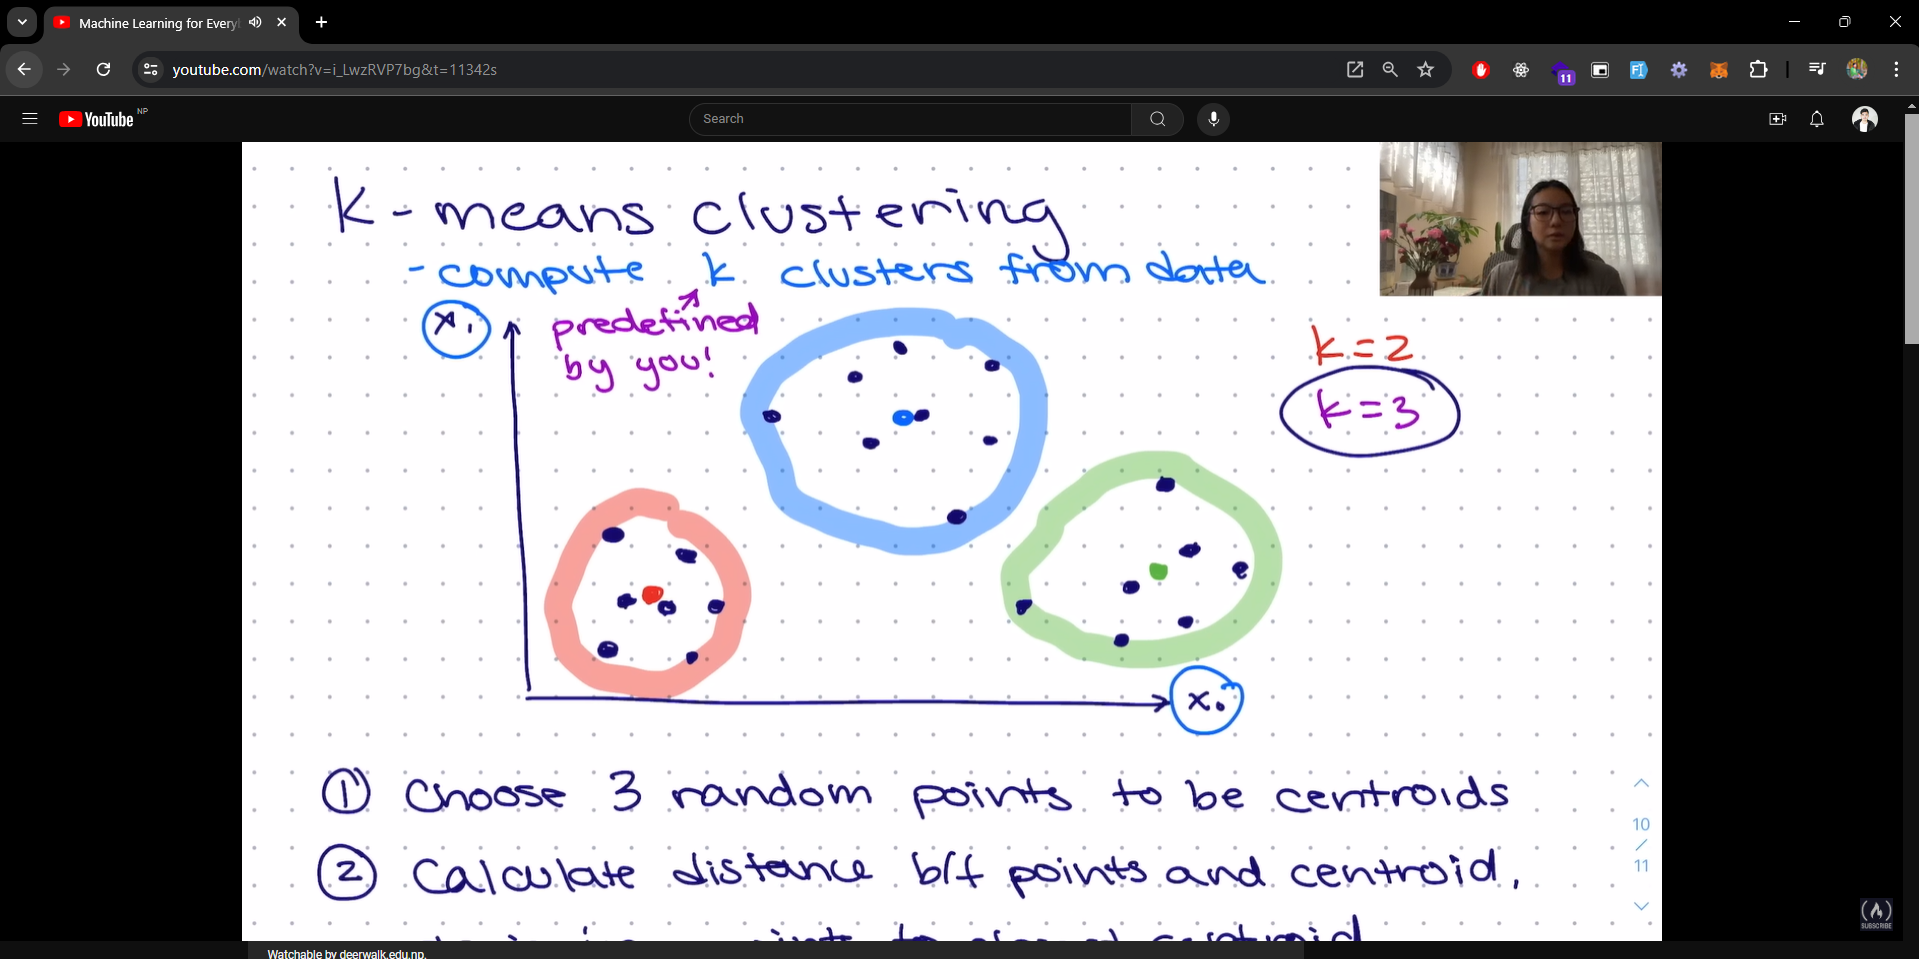 Machine Learning for Every
youtube.com/watch?v=i_LwzRVP7bg&t=11342s
11
YouTube NP
Search
k-means clustering
- compute k clusters from data
predefined
by you!
x₁
k=2
k=3
x₀
① Choose 3 random points to be centroids
② Calculate distance b/t points and centroid,
points to closest centroid
10
/
11
SUBSCRIBE
Watchable by deerwalk.edu.np.